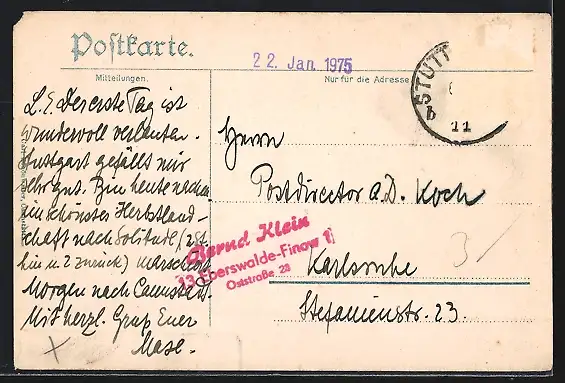 Postkarte.
22. Jan 1975
Mitteilungen.
Nur für die Adresse.
STUTT
b
11
L. E. Der erste Tag ist
wundervoll verlaufen.
Stuttgart gefällt mir
sehr gut. Bin heute
in schönster Herbstland-
schaft nach Solitude (2 St.
hin u. 2 zurück) marschiert
Morgen nach Cannstatt.
Mit herzl. Gruß Euer
Herrn
Postdirector a. D. Koch
Karlsruhe
Stefanienstr. 23.
Bernd Klein
13 Eberswalde-Finow 1
Oststraße 28